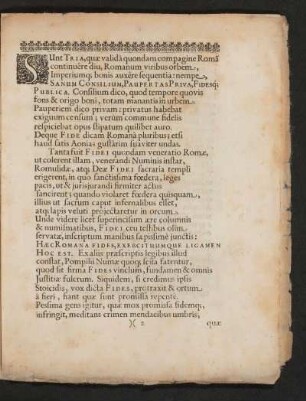 SUnt TRIA, quæ validâ quondam compagine Româ
continuêre diu, Romanum viribus orbem,
Imperiumq; bonis auxêre sequentia: nempe,
SANUM CONSILIUM, PAUPERTAS PRIVA, FIDESQ;
PUBLICA. Consilium dico, quod tempore quovis
fons & origo boni, totam manantis in urbem.
Pauperiem dico privam: privatus habebat
exiguum censum; verùm commune fidelis
respiciebat opus stipatum quilibet auro.
Deque FIDE dicam Romanâ pluribus: etsi
haud satis Aonias gustârim suaviter undas.
Tanta fuit FIDEI quondam veneratio Romæ,
ut colerent illam, venerandi Numinis instar,
Romulidæ, atq; Deæ FIDEI sacraria templi
erigerent, in quo sanctissima fœdera, leges
pacis, ut & jurisjurandi firmiter actus
sancirent; quando violaret fœdera quisquam,
illius ut sacrum caput infernalibus esset,
atq; lapis veluti projectaretur in orcum.
Unde videre licet superincisum ære columnis
& numismatibus, FIDEI, ceu testibus olim
servatæ, inscriptum manibus sapissimè junctis:
HÆC ROMANA FIDES, EXERCITUUMQUE LIGAMEN
HOC EST. Ex aliis præscriptis legibus illud
constat, Pompilii Numæ quoq; scita fatentur,
quod sit firma FIDES vinclum, fundamen & omnis
Justitiæ fulcrum. Siquidem, si credimus ipsis
Stoicidis, vox dicta FIDES, protraxit & ortum
à fieri, fiant quæ sunt promissa repentè.
Pessima gens igitur, quæ mox promissa fidemq;
infringit, meditans crimen mendacibus umbris;
)( 2 quæ